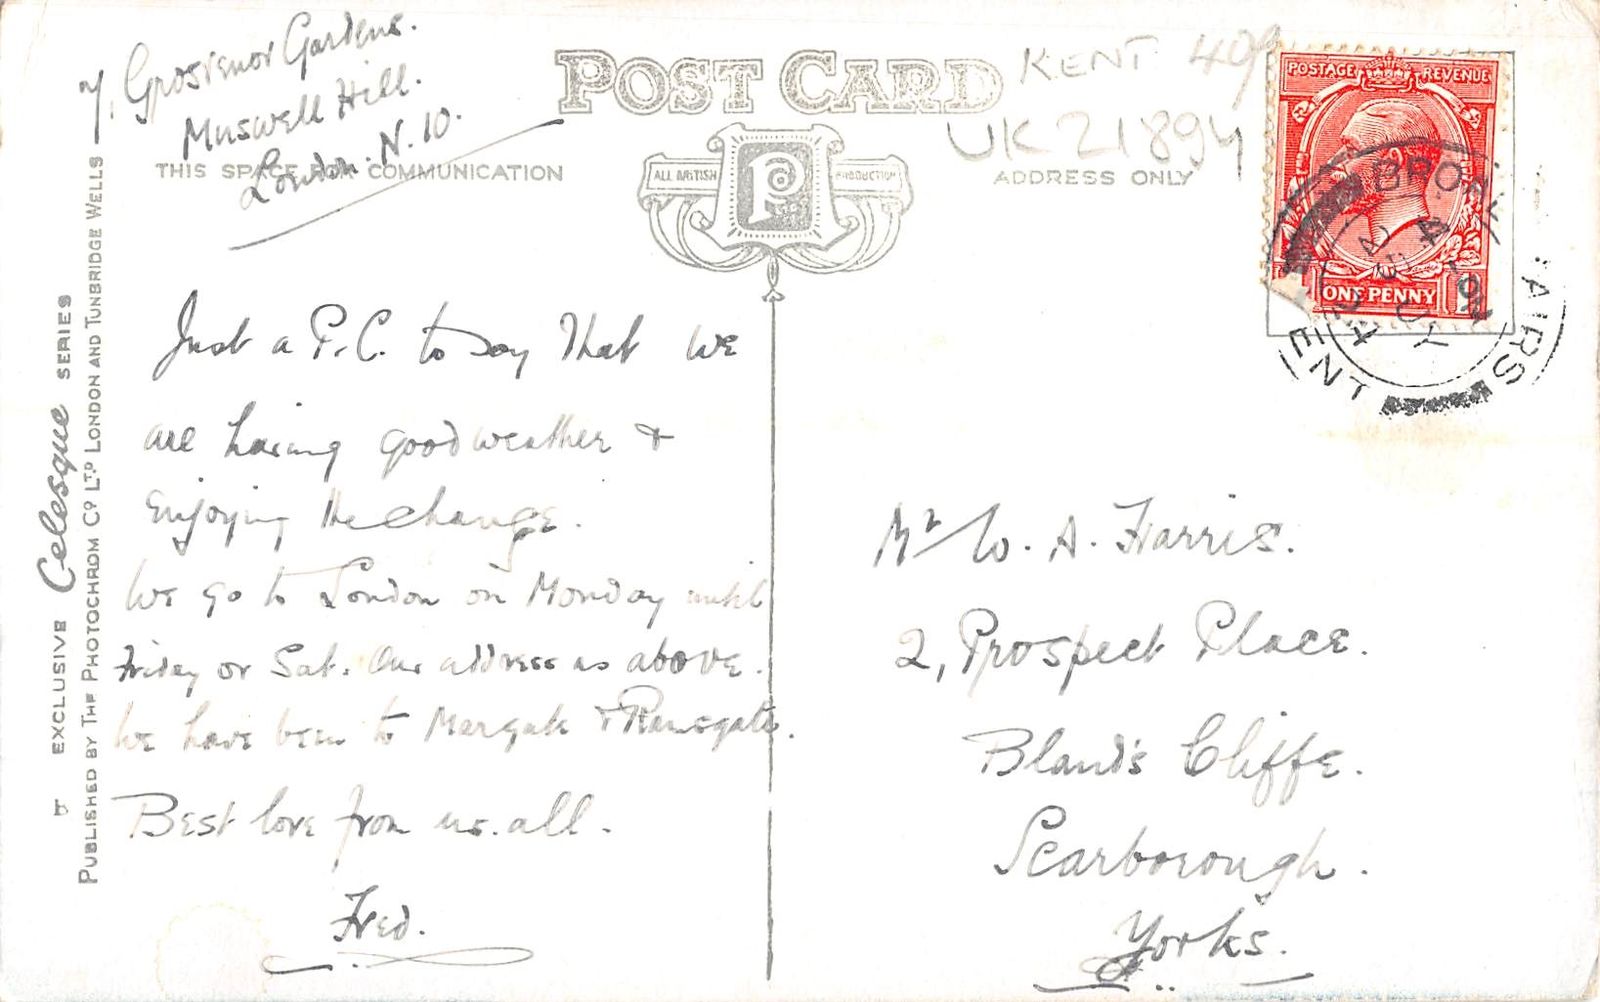 7, Grosvenor Gardens.
Muswell Hill.
London. N. 10.
POST CARD
KENT 409
UK 21894
THIS SPACE FOR COMMUNICATION
ALL BRITISH
PRODUCTION
ADDRESS ONLY
POSTAGE REVENUE
ONE PENNY
BROADSTAIRS
KENT
24
Just a P.C. to say that we
are having good weather &
enjoying the change.
We go to London on Monday until
Friday or Sat. Our address as above.
We have been to Margate & Ramsgate.
Best love from us all.
Fred.
Mr W. A. Harris.
2, Prospect Place.
Bland's Cliffe.
Scarborough.
Yorks.
EXCLUSIVE Celesque SERIES
PUBLISHED BY THE PHOTOCHROM CO LTD LONDON AND TUNBRIDGE WELLS